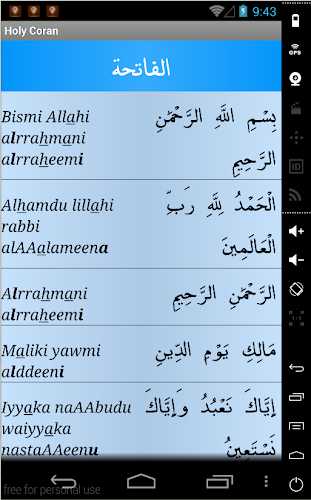 9:43
Holy Coran
الفاتحة
Bismi Allahi
alrrahmani
alrraheemi
بِسْمِ اللَّهِ الرَّحْمَٰنِ
الرَّحِيمِ
Alhamdu lillahi
rabbi
alAAalameena
الْحَمْدُ لِلَّهِ رَبِّ
الْعَالَمِينَ
Alrrahmani
alrraheemi
الرَّحْمَٰنِ الرَّحِيمِ
Maliki yawmi
alddeeni
مَالِكِ يَوْمِ الدِّينِ
Iyyaka naAAbudu
waiyyaka
nastaAAeenu
إِيَّاكَ نَعْبُدُ وَإِيَّاكَ
نَسْتَعِينُ
free for personal use
GPS
ID
1:1